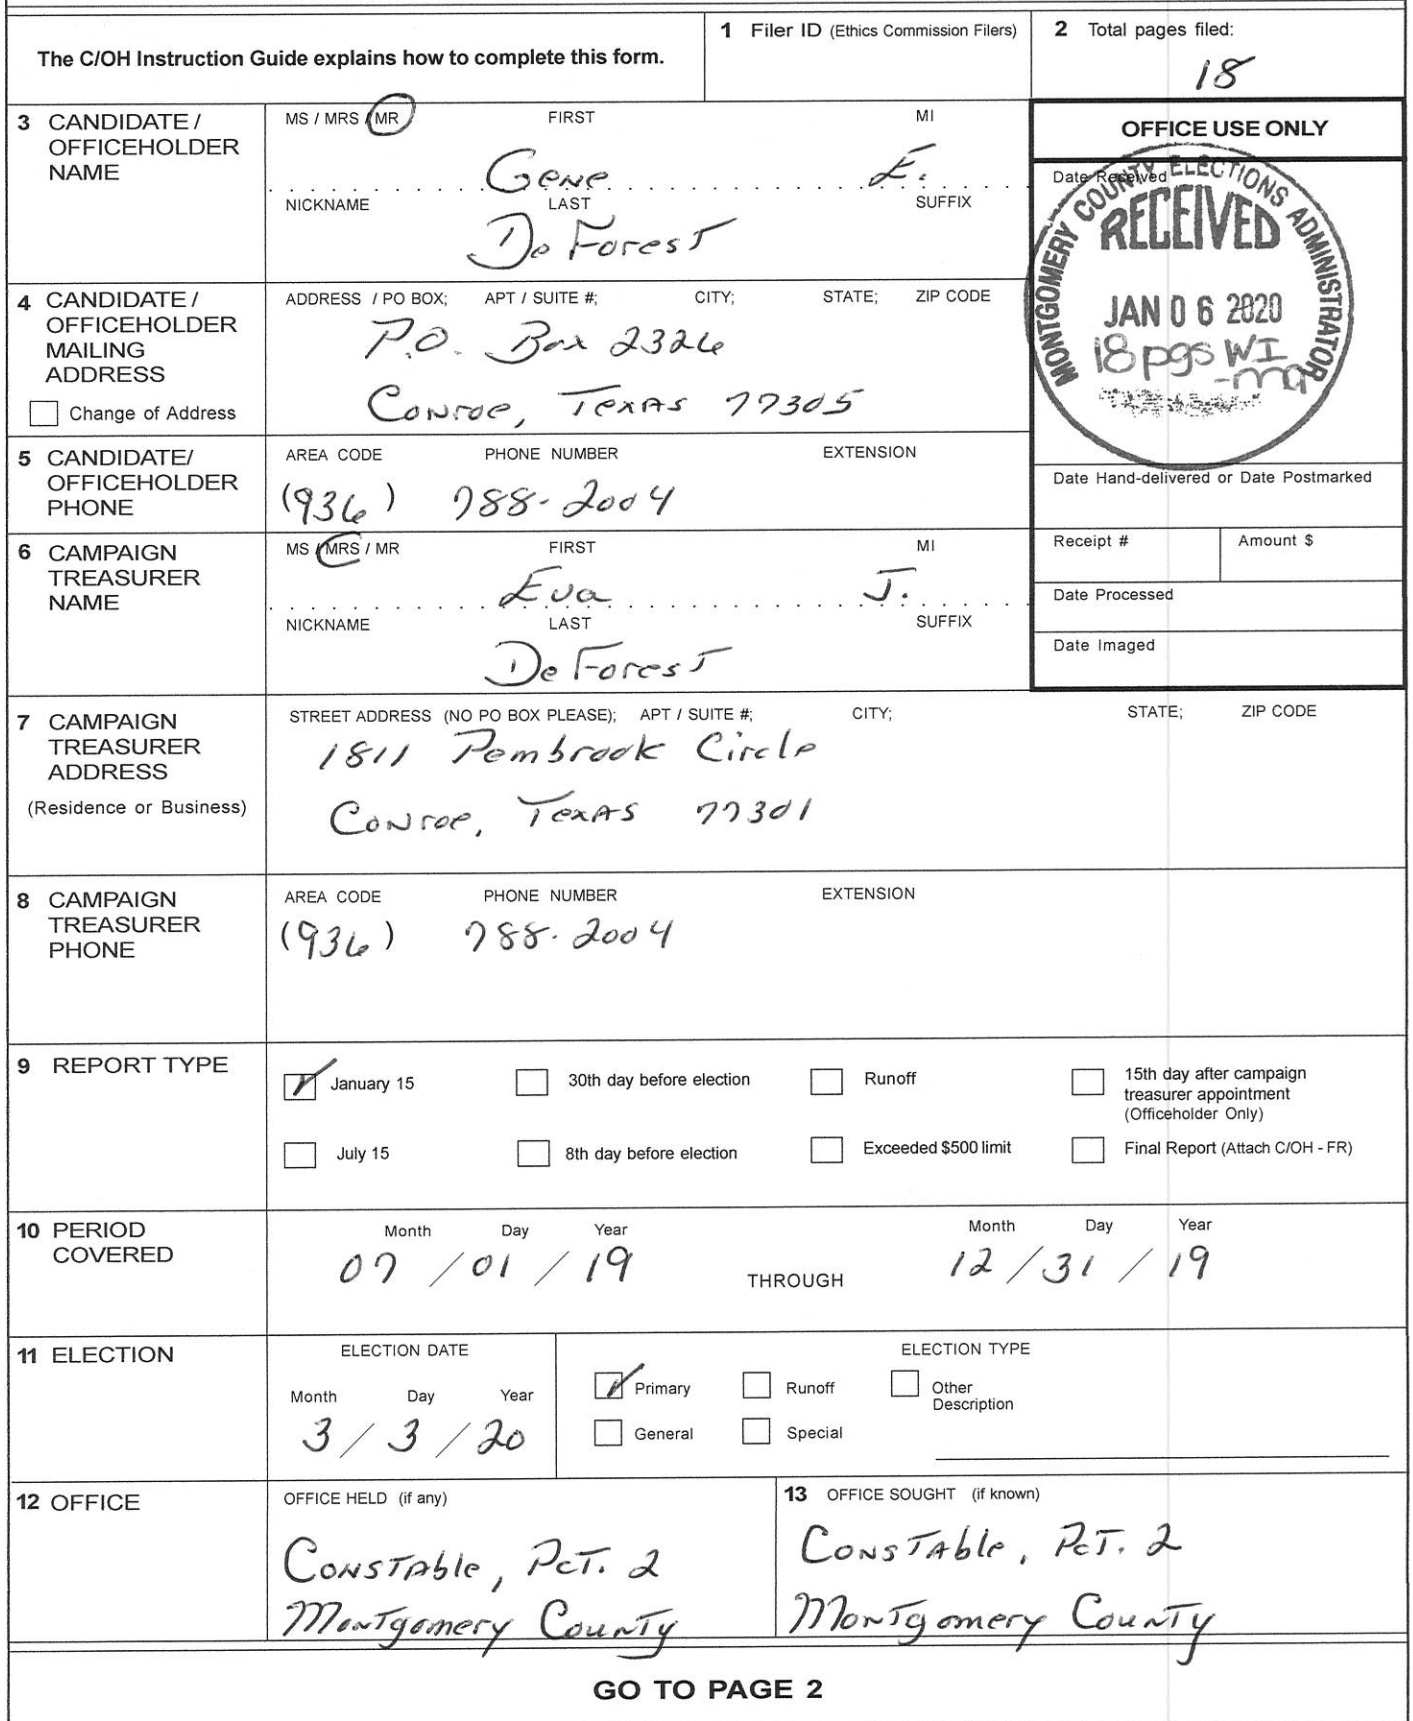 The C/OH Instruction Guide explains how to complete this form.
1 Filer ID (Ethics Commission Filers)
2 Total pages filed:
18
3 CANDIDATE / OFFICEHOLDER NAME
MS / MRS / MR FIRST MI
Gene E.
NICKNAME LAST SUFFIX
DeForest
OFFICE USE ONLY
Date Received
MONTGOMERY COUNTY ELECTIONS ADMINISTRATOR
RECEIVED
JAN 06 2020
18 pgs WI
4 CANDIDATE / OFFICEHOLDER MAILING ADDRESS
Change of Address
ADDRESS / PO BOX; APT / SUITE #; CITY; STATE; ZIP CODE
P.O. Box 2326
Conroe, Texas 77305
5 CANDIDATE/ OFFICEHOLDER PHONE
AREA CODE PHONE NUMBER EXTENSION
(936) 788-2004
Date Hand-delivered or Date Postmarked
Receipt # Amount $
Date Processed
Date Imaged
6 CAMPAIGN TREASURER NAME
MS / MRS / MR FIRST MI
Eva J.
NICKNAME LAST SUFFIX
DeForest
7 CAMPAIGN TREASURER ADDRESS
(Residence or Business)
STREET ADDRESS (NO PO BOX PLEASE); APT / SUITE #; CITY; STATE; ZIP CODE
1811 Pembrook Circle
Conroe, Texas 77301
8 CAMPAIGN TREASURER PHONE
AREA CODE PHONE NUMBER EXTENSION
(936) 788-2004
9 REPORT TYPE
January 15 30th day before election Runoff 15th day after campaign treasurer appointment (Officeholder Only)
July 15 8th day before election Exceeded $500 limit Final Report (Attach C/OH - FR)
10 PERIOD COVERED
Month Day Year Month Day Year
07 / 01 / 19 THROUGH 12 / 31 / 19
11 ELECTION
ELECTION DATE
Month Day Year
3 / 3 / 20
ELECTION TYPE
Primary Runoff Other Description
General Special
12 OFFICE
OFFICE HELD (if any)
Constable, Pct. 2
Montgomery County
13 OFFICE SOUGHT (if known)
Constable, Pct. 2
Montgomery County
GO TO PAGE 2